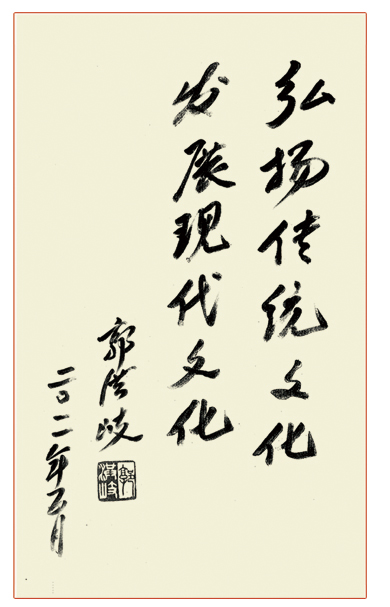 弘扬传统文化
发展现代文化
郭洪岐
二〇一二年五月